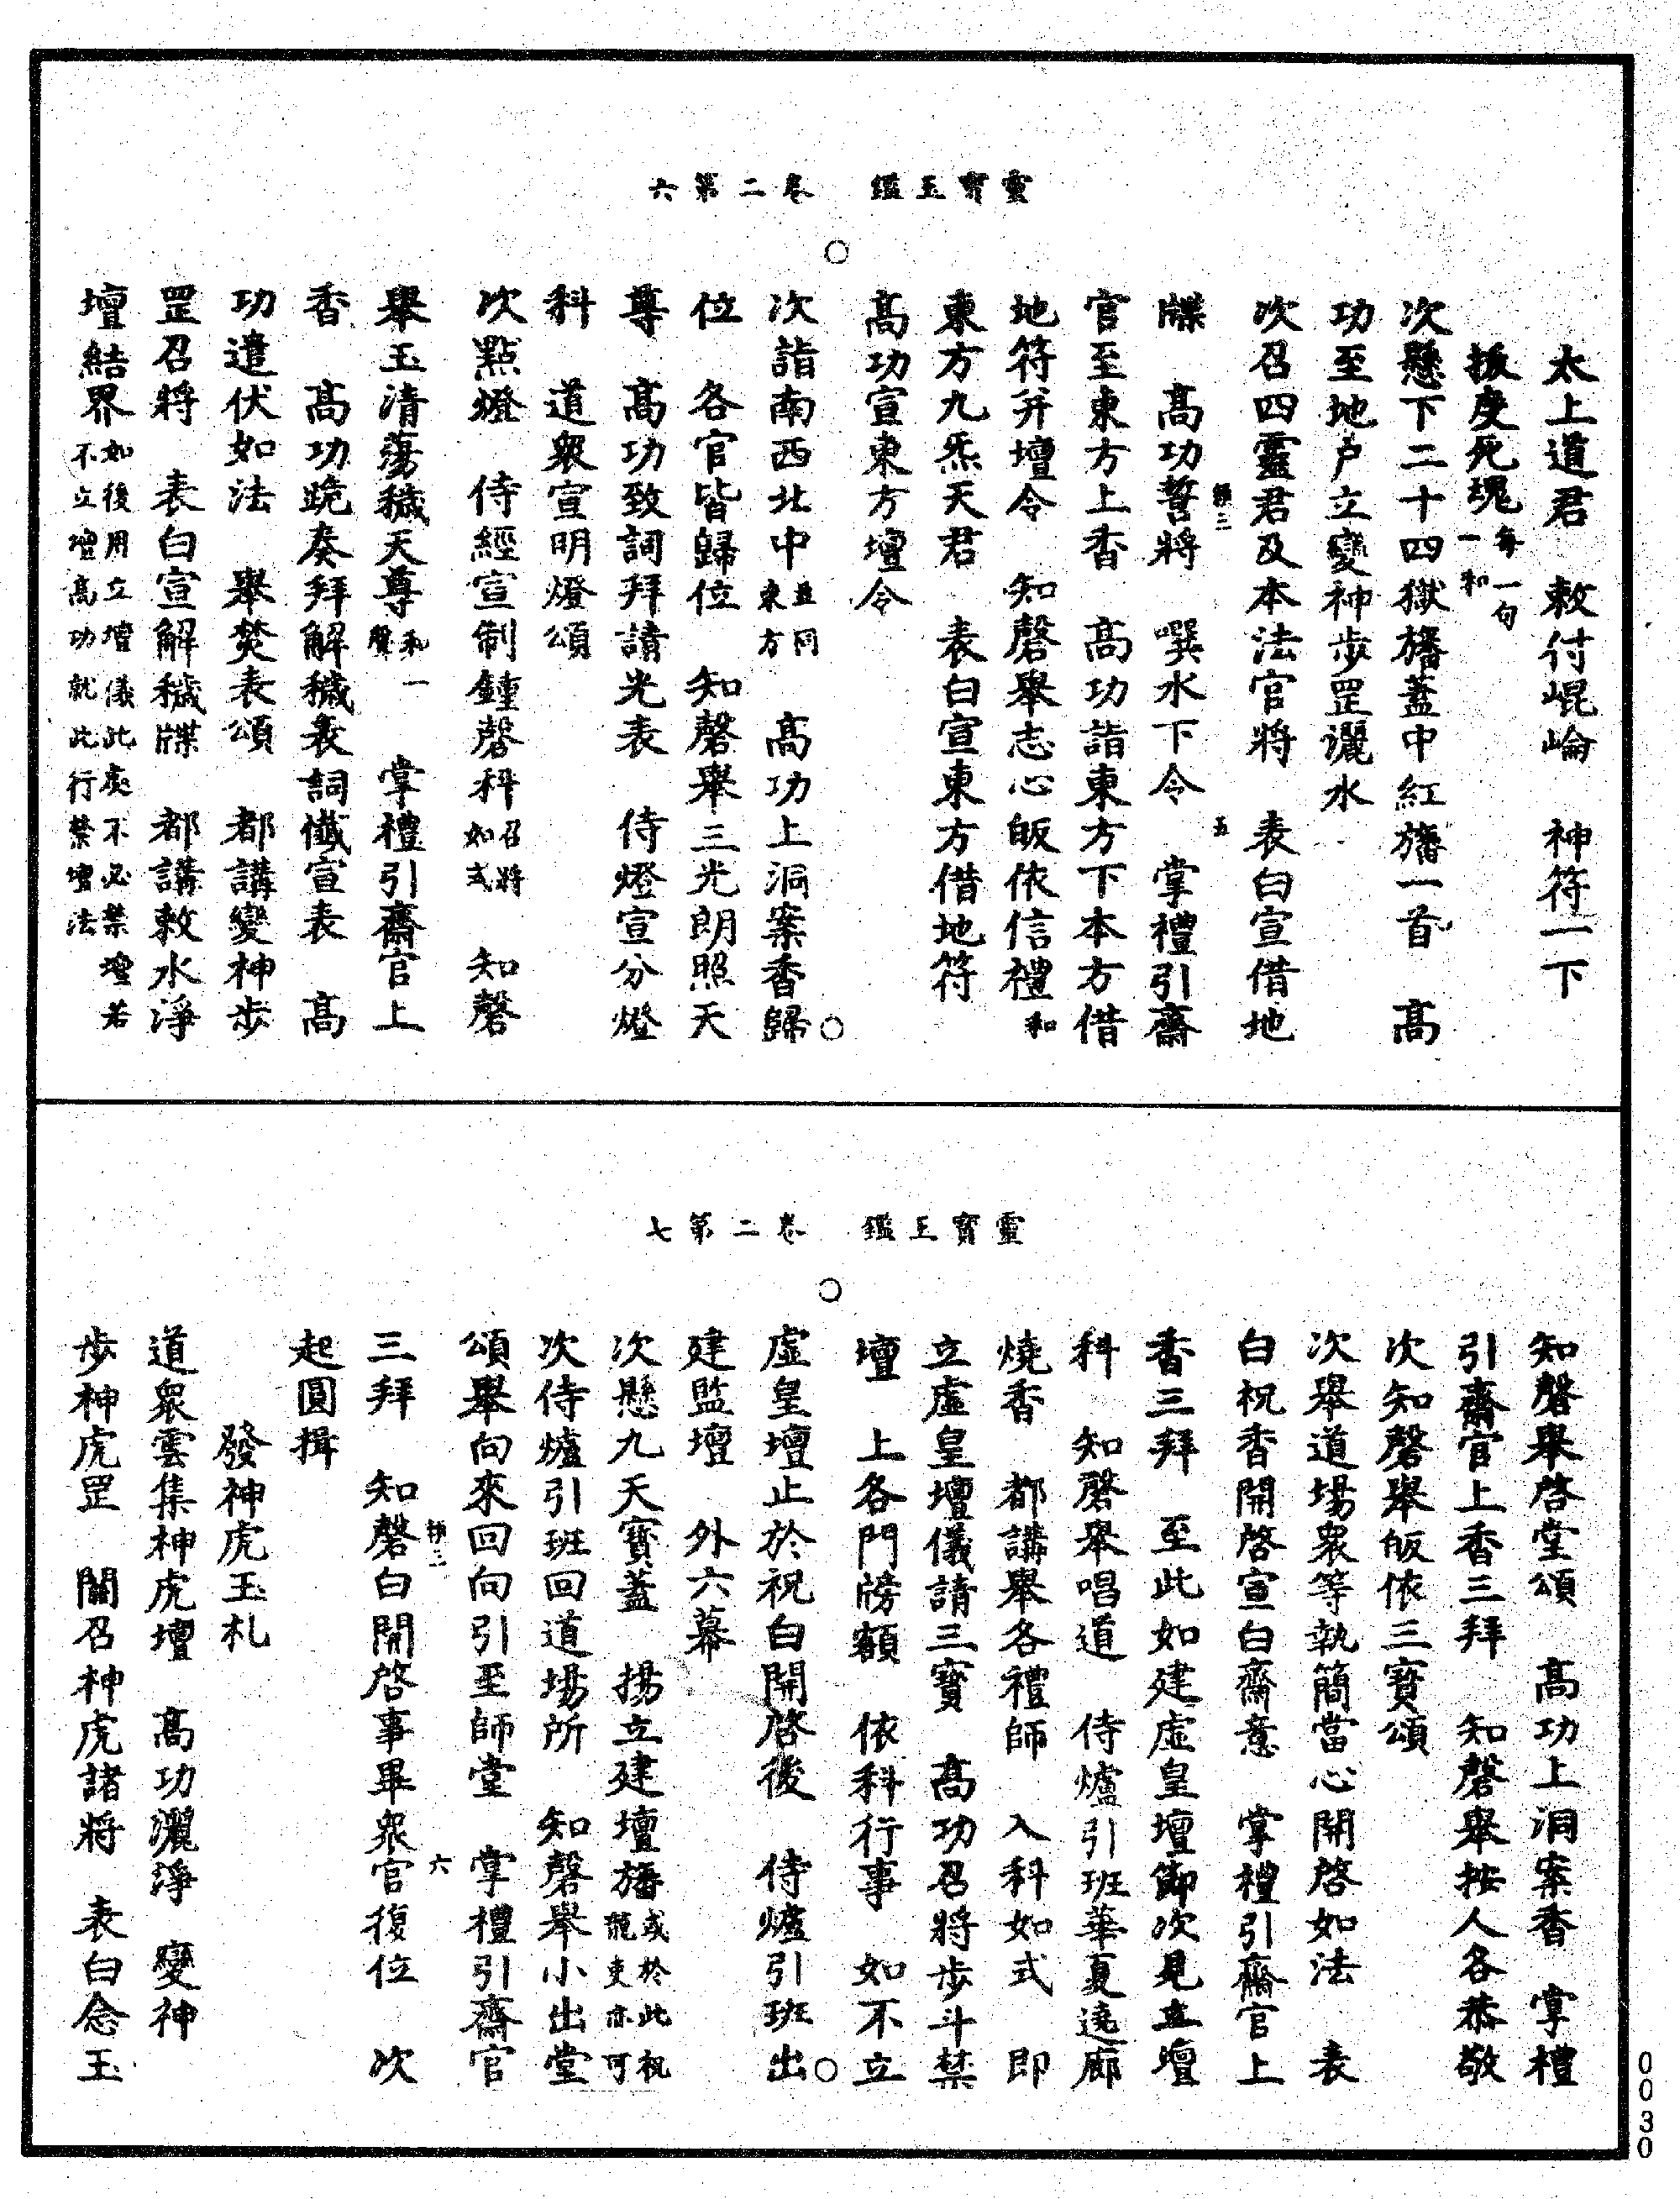 靈寶玉鑑　卷二第六
太上道君　敕付崐崘　神符一下
㧞度死魂每一句一和
次懸下二十四獄旛蓋中紅旛一首　高
功至地戶立變神步罡灑水
次召四靈君及本法官將　表白宣借地
牒　高功誓將　噀水下令　掌禮引齋
官至東方上香　高功詣東方下本方借
地符并壇令　知磬舉志心皈依信禮和
東方九炁天君　表白宣東方借地符
高功宣東方壇令
次詣南西北中並同東方　高功上洞案香歸
位　各官皆歸位　知磬舉三光朗照天
尊　高功致詞拜請光表　侍燈宣分燈
科　道衆宣明燈頌
次點燈　侍經宣制鐘磬科召將如式　知磬
舉玉清蕩穢天尊和一聲　掌禮引齋官上
香　高功跪奏拜解穢表詞懺宣表　高
功遣伏如法　舉焚表頌　都講變神步
罡召將　表白宣解穢牒　都講敕水淨
壇結界如後用立壇儀此處不必禁壇若不立壇高功就此行禁壇法
靈寶玉鑑　卷二第七
知磬舉啓堂頌　高功上洞案香　掌禮
引齋官上香三拜　知磬舉按人各恭敬
次知磬舉皈依三寶頌
次舉道場衆等執簡當心開啓如法　表
白祝香開啓宣白齋意　掌禮引齋官上
香三拜　至此如建虛皇壇卽次見立壇
科　知磬舉唱道　侍爐引班華夏遶廊
燒香　都講舉各禮師　入科如式　即
立虛皇壇儀請三寶　高功召將步斗禁
壇　上各門牓額　依科行事　如不立
虛皇壇止於祝白開啓後　侍爐引班出
建監壇　外六幕
次懸九天寶蓋　揚立建壇旛或於此祝龍吏亦可
次侍爐引班回道場所　知磬舉小出堂
頌舉向來回向引至師堂　掌禮引齋官
三拜　知磬白開啓事畢衆官復位　次
起圓揖
發神虎玉札
道衆雲集神虎壇　高功灑淨　變神
步神虎罡　關召神虎諸將　表白念玉
0030